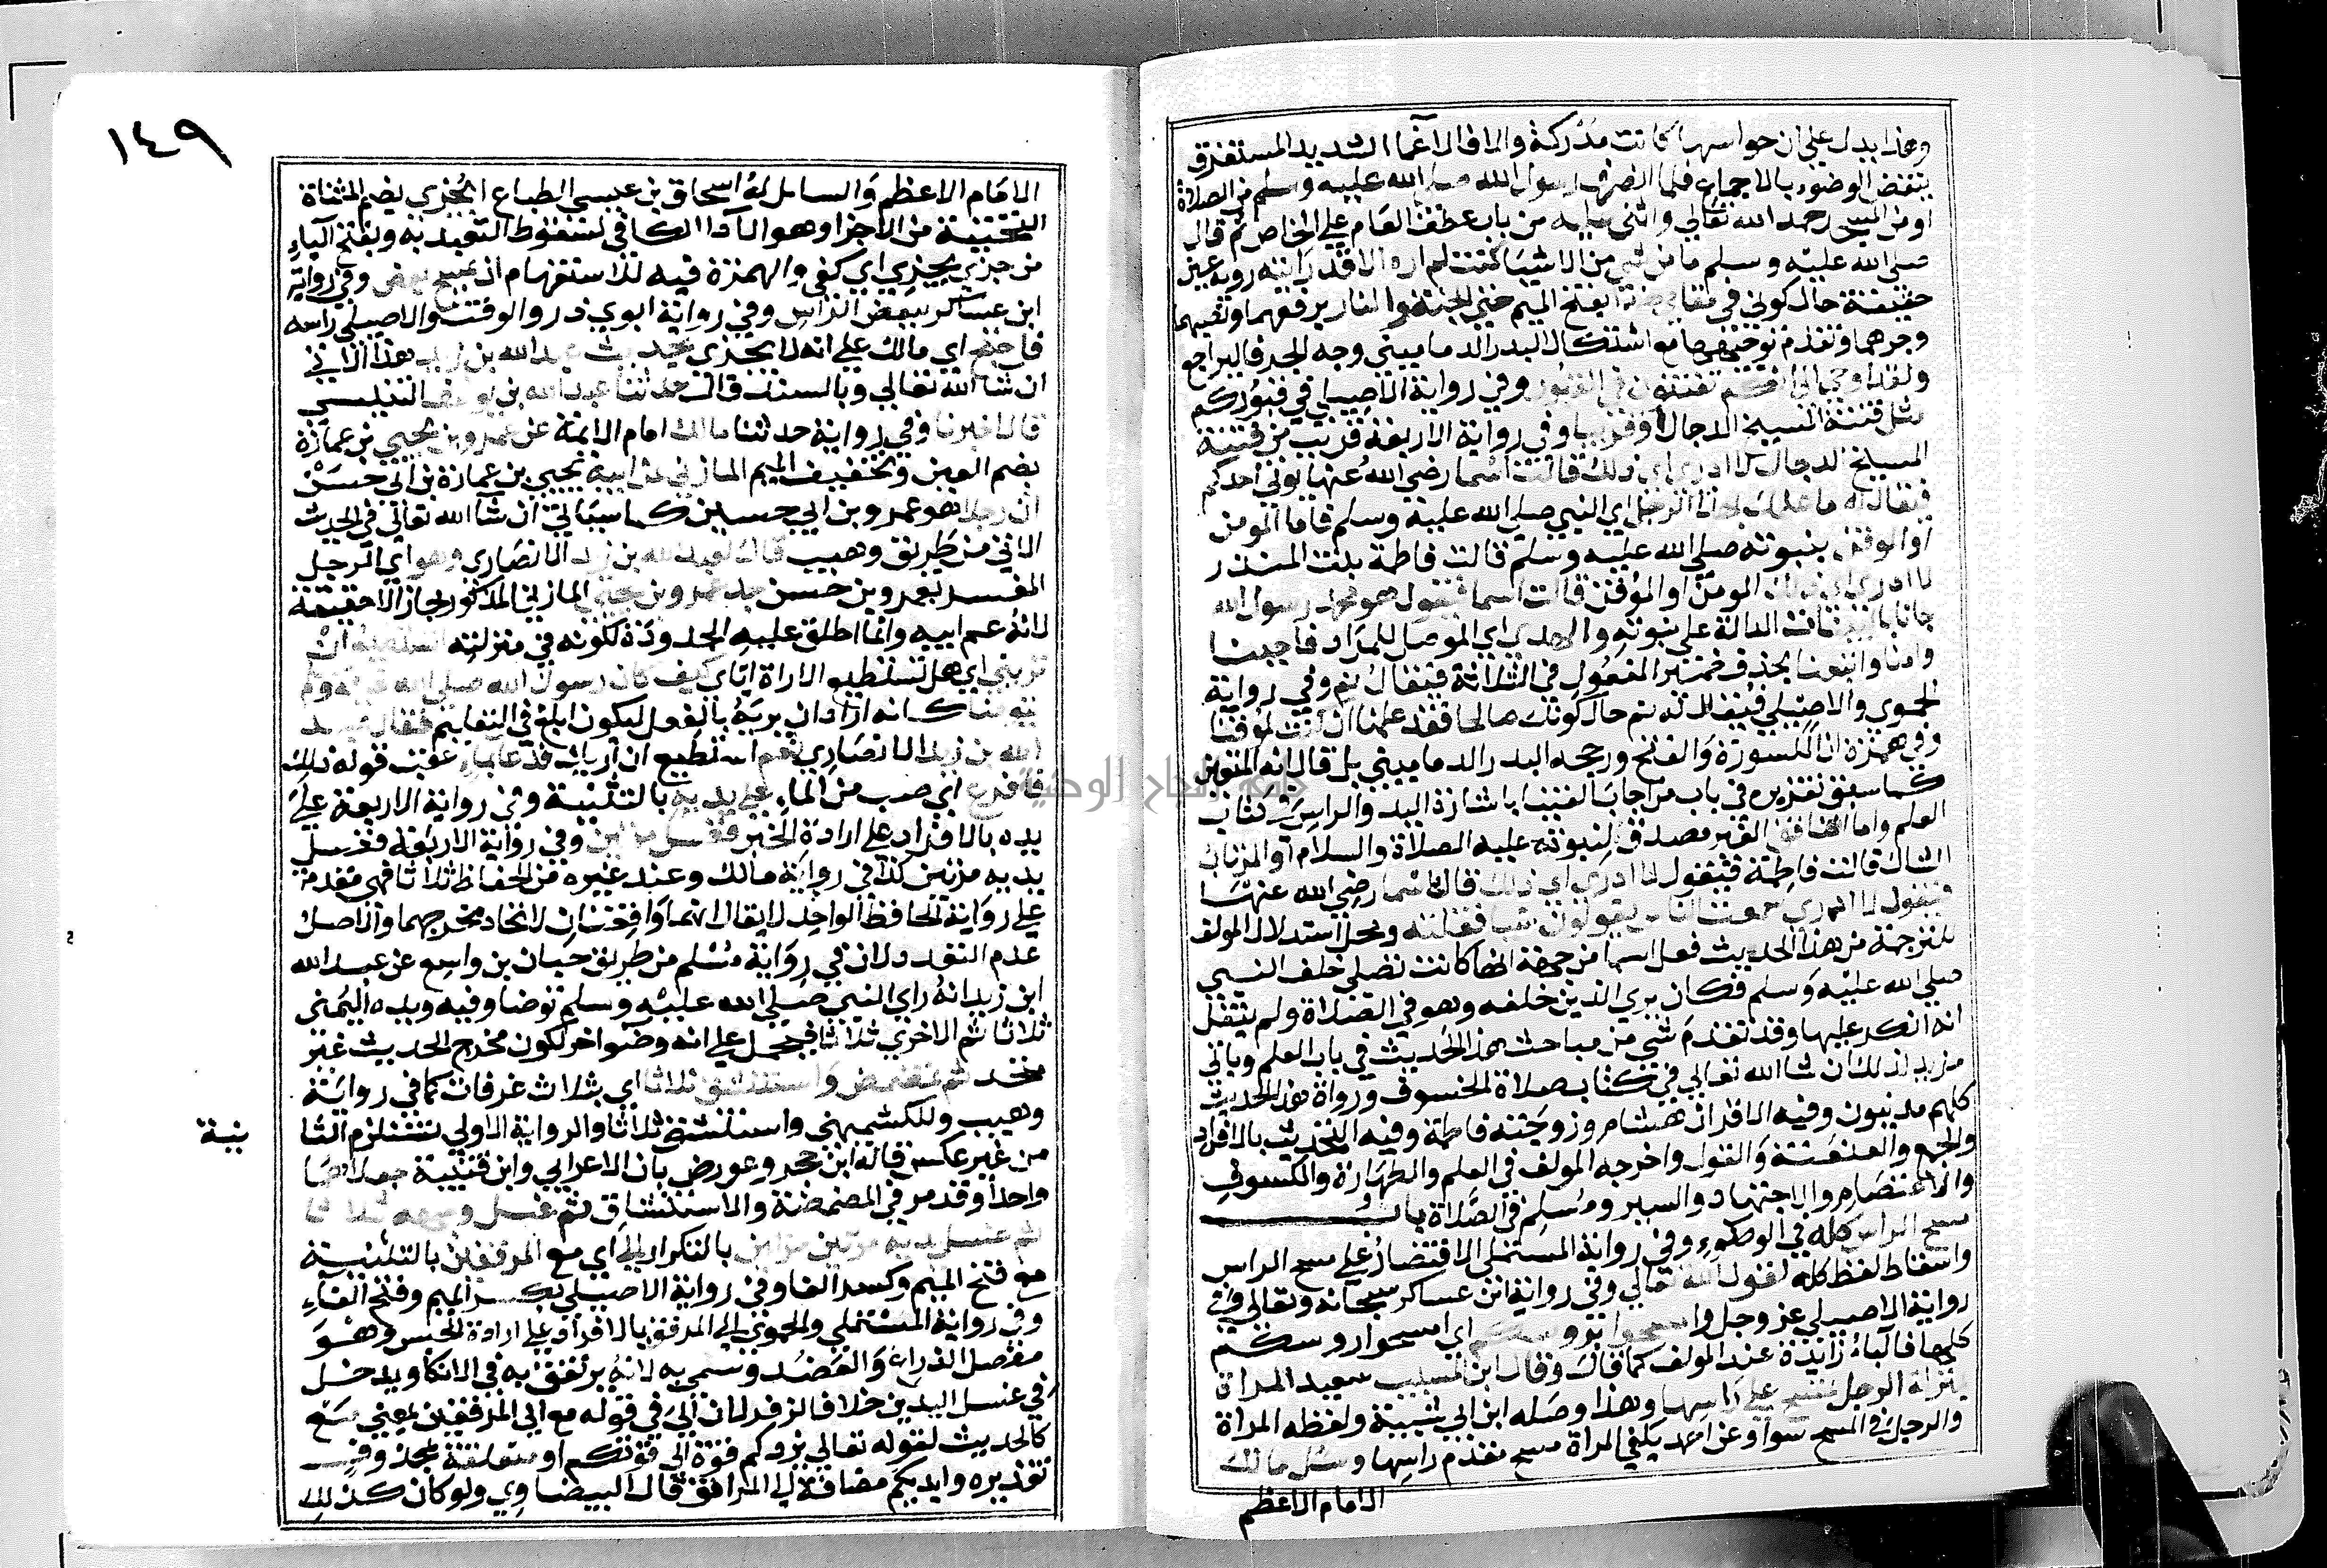 وهذا يدل علي ان حواسها كانت مدركة والا فالاغما الشديد المستغرق
ينقض الوضوء بالاجماع فلما انصرف رسول الله صلي الله عليه وسلم من الصلاة
او من المسجد حمد الله تعالي واثني عليه من باب عطف العام علي الخاص ثم قال
صلي الله عليه وسلم ما من شي من الاشيا كنت لم اره الا قد رايته روية عين
حقيقة حال كوني في مقامي هذا بفتح الميم حتي الجنة والنار برفعهما ونصبهما
وجرهما وتقدم توجيهها مع استشكال البدر الدماميني وجه الجر فاليراجع
ولقد اوحي الي انكم تفتنون في القبور وفي رواية الاصيلي في قبوركم
مثل فتنة المسيح الدجال او قريبا وفي رواية الاربعة قريب من فتنة
المسيح الدجال لا ادري اي ذلك قالت اسما رضي الله عنها يوتي احدكم
فيقال له ما علمك بهذا الرجل اي النبي صلي الله عليه وسلم فاما المومن
او الموقن بنبوته صلي الله عليه وسلم قالت فاطمة بلت المنذر
لا ادري اي ذلك المومن او الموقن قالت اسما فيقول هو محمد رسول الله
جانا بالبينات الدالة علي نبوته والهدي اي الموصل للمراد فاجبنا
وامنا واتبعنا بحذف ضمير المفعول في الثلاثة فيقال نم وفي رواية
الحموي والاصيلي فيقال له نم حال كونك صالحا فقد علمنا ان كنت لموقنا
وفي همزة ان الكسورة والفتح ورجحه البدر الدماميني بل قال انه المتعين
كما سبق تقريره في باب من اجاب الفتيا باشارة اليد والراس من كتاب
العلم واما المنافق الغير مصدق لنبوته عليه الصلاة والسلام او المرتاب
الشاك قالت فاطمة فيقول لا ادري اي ذلك قالت اسما رضي الله عنها
فيقول لا ادري سمعت الناس يقولون شيا فقلته ومحل استدلال المولف
للترجمة من هذا الحديث فعل اسما من جهة انها كانت تصلي خلف النبي
صلي الله عليه وسلم فكان يري الذين خلفه وهو في الصلاة ولم ينقل
انه انكر عليها وقد تقدم شي من مباحث هذا الحديث في باب العلم وياتي
مزيد لذلك ان شا الله تعالي في كتاب صلاة الخسوف ورواة هذا الحديث
كلهم مدنيون وفيه الاقران هشام وزوجته فاطمة وفيه التحديث بالافراد
والجمع والعنعنة والقول واخرجه المولف في العلم والطهارة والكسوف
والاعتصام والاجتهاد والسير ومسلم في الصلاة باب
مسح الراس كله في الوضوء وفي رواية المستملي الاقتصار علي مسح الراس
واسقاط لفظ كله لقول الله تعالي وفي رواية ابن عساكر سبحانه وتعالي وفي
رواية الاصيلي عز وجل وامسحوا بروسكم اي امسحوا روسكم
كلها فالباء زايدة عند المولف كما قال وقال ابن المسيب سعيد المراة
بمنزلة الرجل تمسح علي راسها وهذا وصله ابن ابي شيبة ولفظه المراة
والرجل في المسح سوا وعن احمد يكفي المراة مسح مقدم راسها وسئل مالك
الامام الاعظم
١٤٩
الامام الاعظم والسايل له اسحاق بن عيسي الطباع ايجزي بضم المثناة
التحتية من الاجزا وهو الادا الكافي لسقوط التعبد به وبفتح الياء
من جزي يجزي اي كفي والهمزة فيه للاستفهام ان يمسح بعض وفي رواية
ابن عساكر ببعض الراس وفي رواية ابوي ذر والوقت والاصيلي راسه
فاحتج اي مالك علي انه لا يجزي بحديث عبد الله بن زيد هذا الاتي
ان شا الله تعالي وبالسند قال حدثنا عبد الله بن يوسف التنيسي
قال اخبرنا وفي رواية حدثنا مالك امام الايمة عن عمرو بن يحيي بن عمارة
بضم العين وتخفيف الميم المازني عن ابيه يحيي بن عمارة بن ابي حسن
ان رجلا هو عمرو بن ابي حسين كما سياتي ان شا الله تعالي في الحديث
الاتي من طريق وهيب قال لعبد الله بن زيد الانصاري وهو اي الرجل
المفسر بعمرو بن حسن جد عمرو بن يحيي المازني المذكور مجازا لا حقيقة
لانه عم ابيه وانما اطلق عليه الجدودة لكونه في منزلته اتستطيع ان
تريني اي هل تستطيع الاراة اياي كيف كان رسول الله صلي الله عليه وسلم
يتوضا كانه اراد ان يريه بالفعل ليكون ابلغ في التعليم فقال عبد
الله بن زيد الانصاري نعم استطيع ان اريك فدعا بماء عقب قوله ذلك
فافرغ اي صب من الماء علي يديه بالتثنية وفي رواية الاربعة علي
يده بالافراد علي ارادة الخبر فغسل مرتين وفي رواية الاربعة فغسل
يديه مرتين كذا في رواية مالك وعند غيره من الحفاظ ثلاثا فهي مقدمة
علي رواية الحافظ الواحد لا يقال انهما واقعتان لاتحاد مخرجهما والاصل
عدم التعدد لان في رواية مسلم من طريق حبان بن واسع عن عبد الله
ابن زيد انه راي النبي صلي الله عليه وسلم توضا وفيه ويده اليمني
ثلاثا ثم الاخري ثلاثا فيحمل علي انه وضو اخر لكون مخرج الحديث غير
متحد ثم تمضمض واستنشق ثلاثا اي بثلاث غرفات كما في رواية
وهيب وللكشميهني واستنشق ثلاثا والرواية الاولي تستلزم الثا
نية
من غير عكس قاله ابن حجر وعورض بان الاعرابي وابن قتيبة جعلاهما
واحدا وقد مر في المضمضة والاستنشاق ثم غسل وجهه ثلاثا
ثم غسل يديه مرتين مرتين بالتكرار الي اي مع المرفقين بالتثنية
مع فتح الميم وكسر الفا وفي رواية الاصيلي بكسر الميم وفتح الفاء
وفي رواية المستملي والحموي الي المرفق بالافراد علي ارادة الجنس وهو
مفصل الذراع والعضد وسمي به لانه يرتفق به في الاتكا ويدخل
في غسل اليدين خلافا لزفر لان الي في قوله مع الي المرفقين بمعني مع
كالحديث لقوله تعالي يزدكم قوة الي قوتكم او متعلقة بمحذوف
تقديره وايديكم مضافة الي المرافق قال البيضاوي ولو كان كذلك
جامعة النجاح الوطنية